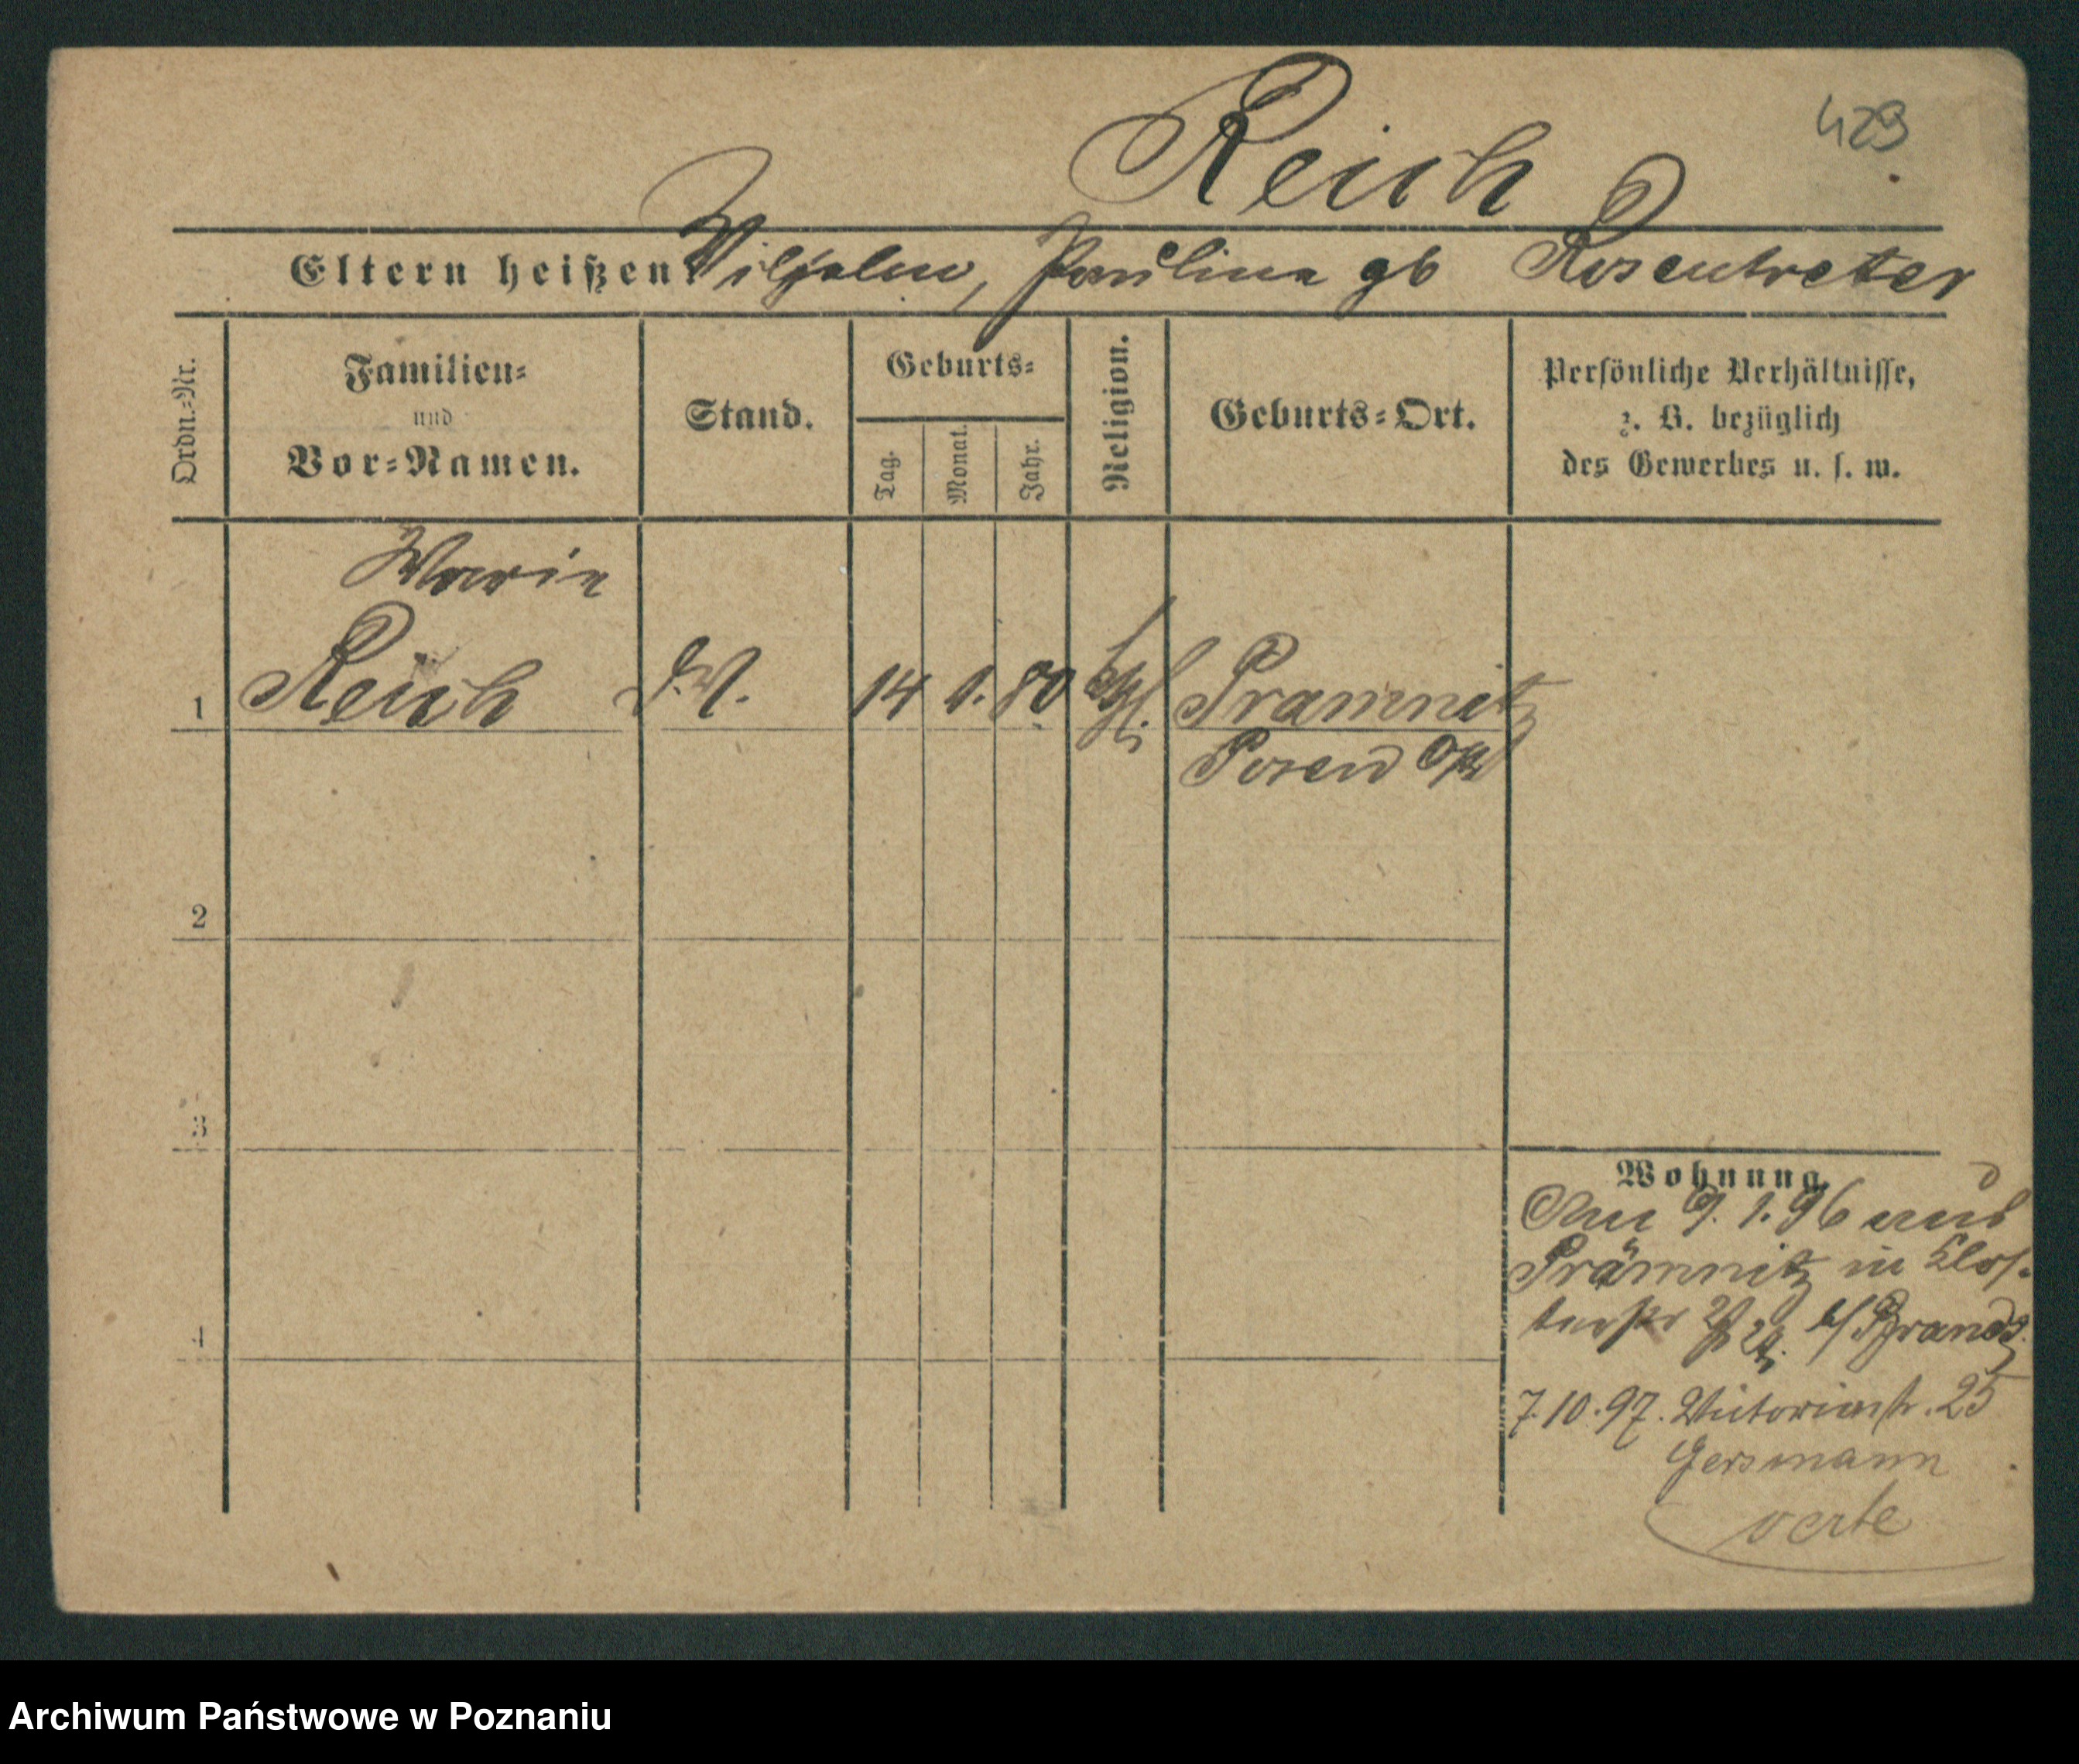 Reich
429
Eltern heißen: Wilhelm, Pauline gb Rosentreter
Ordn.-Nr.
Familien-
und
Vor-Namen.
Stand.
Geburts-
Tag.
Monat.
Jahr.
Religion.
Geburts-Ort.
Persönliche Verhältnisse,
z. B. bezüglich
des Gewerbes u. s. w.
Marie
1 Reich 14 1. 80 Pramnitz
Posen Ost
2
3
4
Wohnung.
Am 9. 1. 96 aus
Prämnitz in Klos-
terstr
7.10.97. Victoriastr. 25
Gersmann
verte
Archiwum Państwowe w Poznaniu